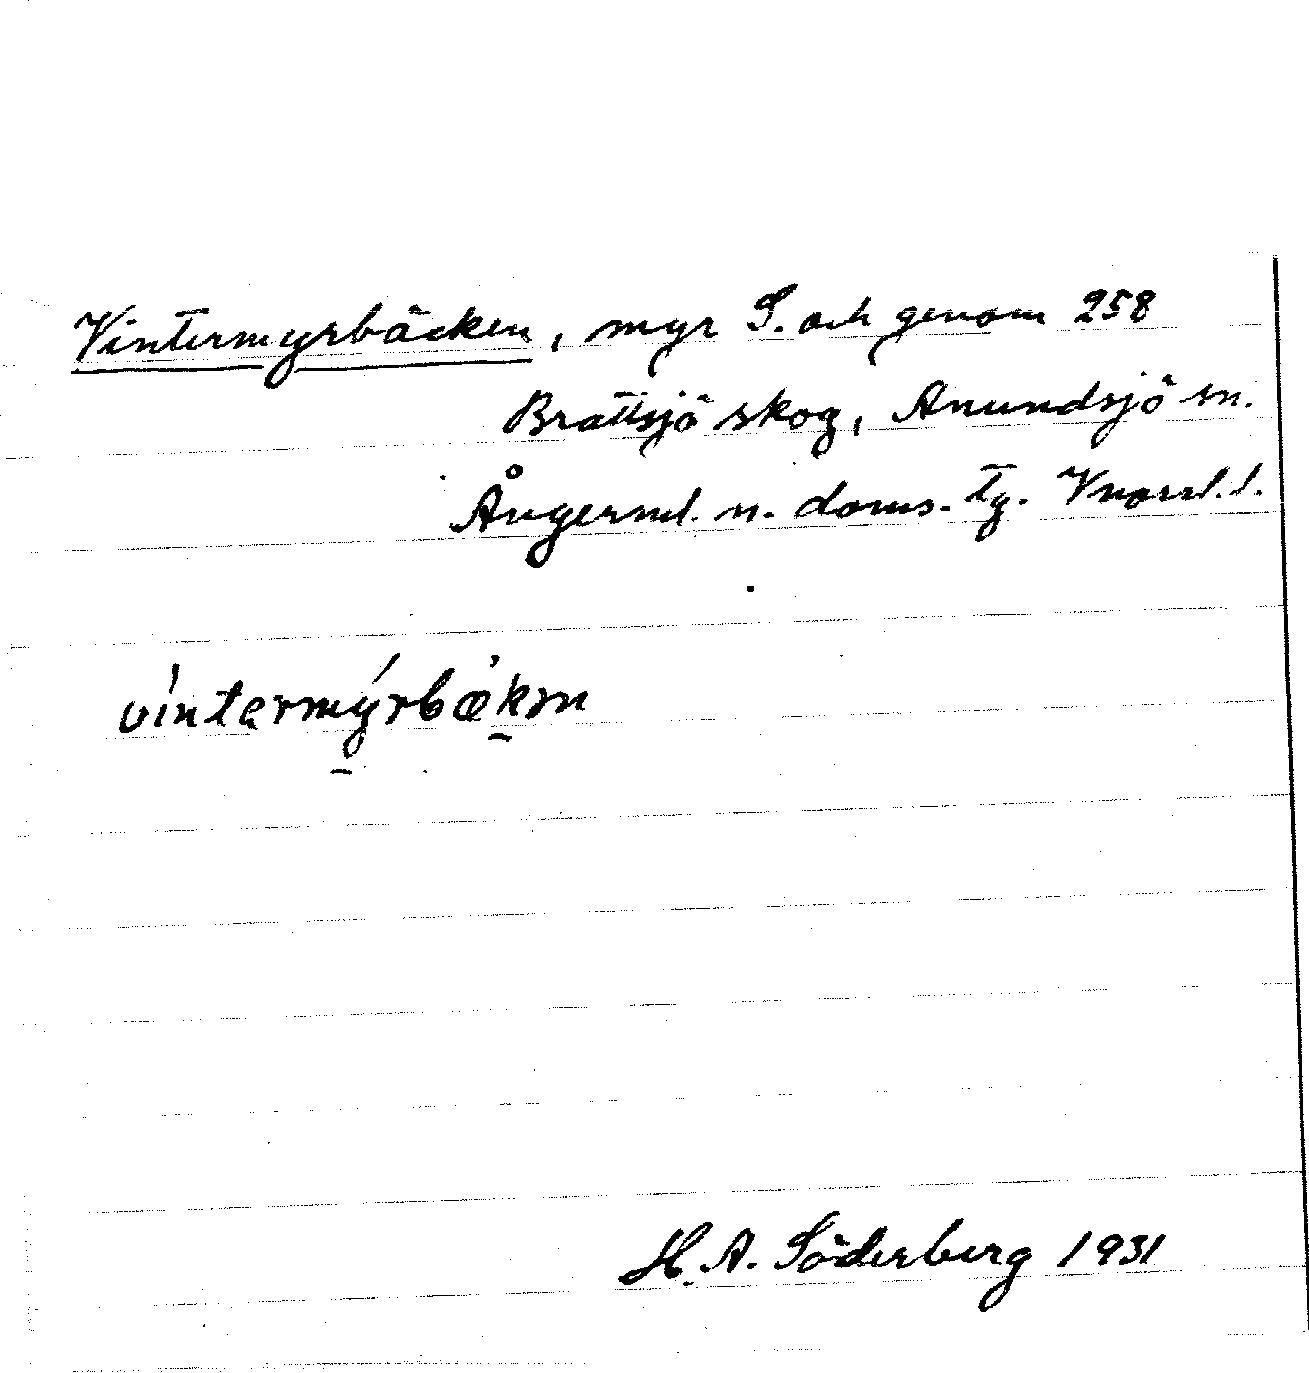 Vintermyrbäcken, myr S. och genom 258
Brattsjö skog, Anundsjö sn.
Ångerml. n. doms. tg. Vnorrl. l.
vintermýrbækən
H. A. Söderberg 1931